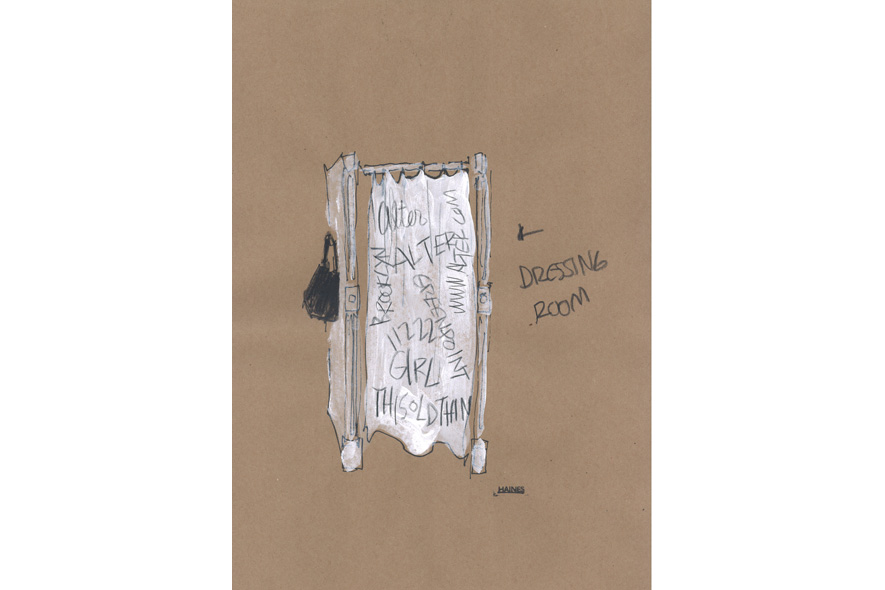 alter
ALTER
BROOKLYN
WWW.ALTER.COM
GREENPOINT
11222
GIRL
THISOLDTHAN
DRESSING
ROOM
HAINES